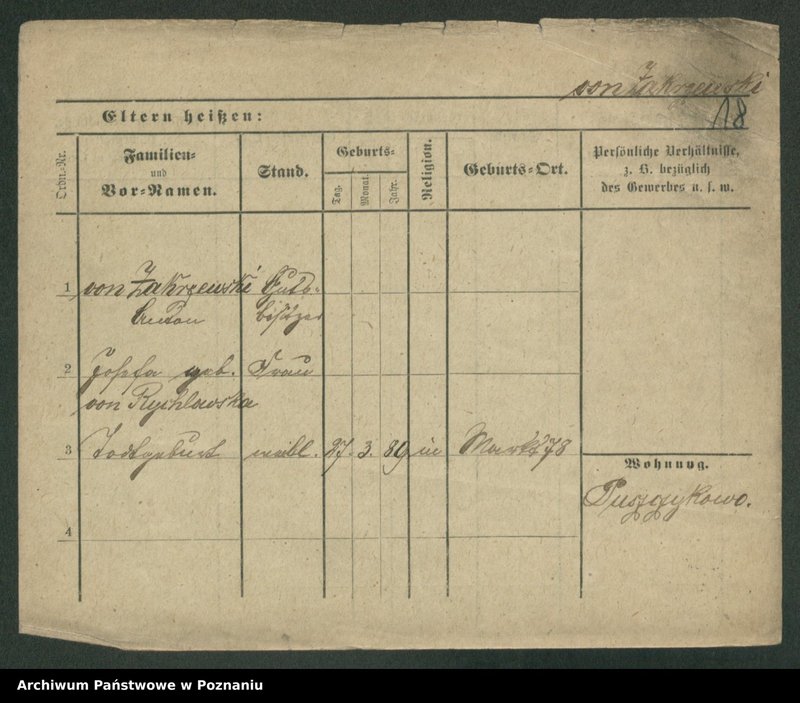 von Zakrzewski
18
Eltern heißen:
Ordn.-Nr.
Familien- und Vor-Namen.
Stand.
Geburts-
Tag.
Monat.
Jahr.
Religion.
Geburts-Ort.
Persönliche Verhältnisse, z. B. bezüglich des Gewerbes u. s. w.
1 von Zakrzewski Guts-
Anton besitzer
2 Josefa geb. Frau
von Rychlowska
3 Todtgeburt weibl. 27. 3. 89 in Markt 78
Wohnung.
Puszczykowo.
4
Archiwum Państwowe w Poznaniu